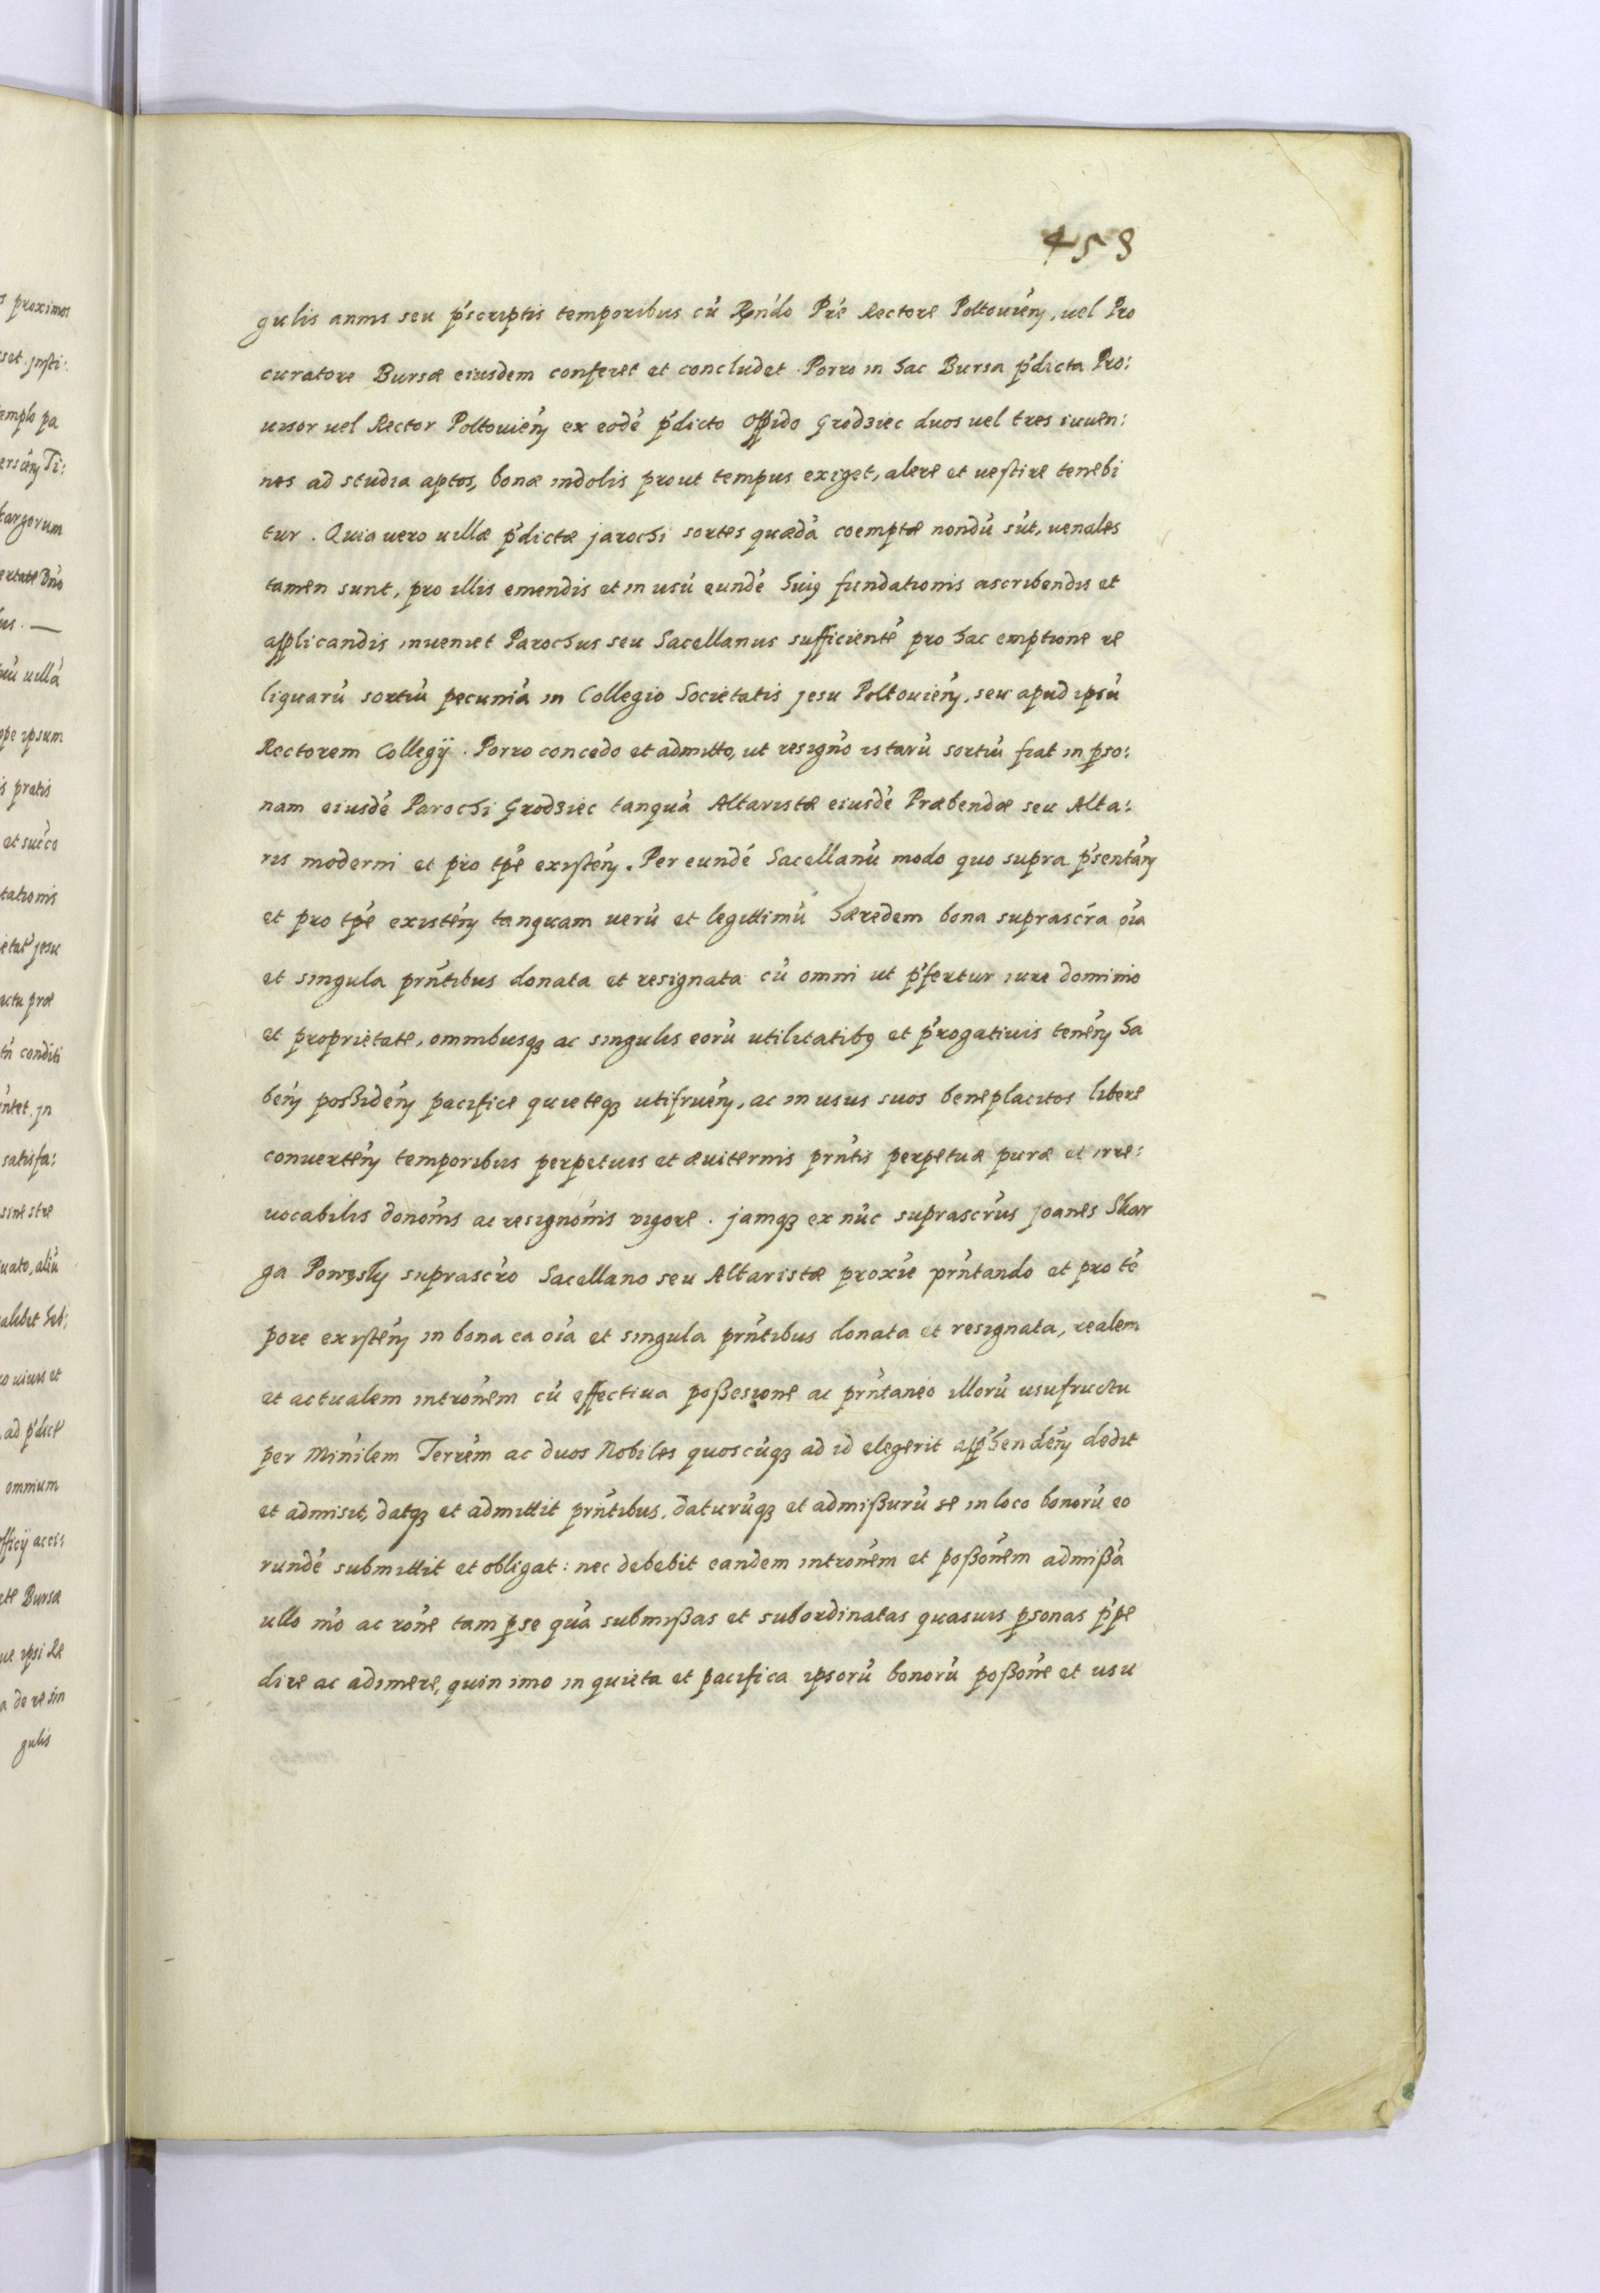 458
gulis annis seu p'scriptis temporibus cū Rndo Pre Rectore Poltouień, uel Pro
curatore Bursæ eiusdem conferet et concludet. Porro in hac Bursa p'dicta Pro:
uisor uel Rector Poltouień ex eodē p'dicto oppido Grodziec duos uel tres iuuen:
nes ad studia aptos, bonæ indolis prout tempus exiget, alere et uestire tenebi
tur. Quia uero uillæ p'dictæ Jarochi sortes quædā coemptæ nondū sūt, uenales
tamen sunt, pro illis emendis et in usū eundē huiꝰ fundationis ascribendis et
applicandis inueniet Parochus seu Sacellanus sufficientē pro hac emptione re
liquarū sortiū pecuniā in Collegio Societatis Jesu Poltouień, seu apud ipsū
Rectorem Collegÿ. Porro concedo et admitto, ut resigno istarū sortiū fiat in pso:
nam eiusdē Parochi Grodziec tanquā Altaristæ eiusdē Præbendæ seu Alta:
ris moderni et pro tpē existeń. Per eundē Sacellanū modo quo supra p'sentań
et pro tpē existeń tanquam uerū et legittimū hæredem bona suprascra oīa
et singula prntibus donata et resignata cū omni ut p'fertur iure dominio
et proprietate, omnibusqꝫ ac singulis eorū utilitatibꝰ et p'rogatiuis teneń ha
beń posßideń pacifice quieteqꝫ utifrueń, ac in usus suos beneplacitos libere
conuerteń temporibus perpetuis et æuiternis prntis perpetuæ puræ et irre:
uocabilis donoīs ac resignonis vigore. Jamqꝫ ex nūc suprascrus Joanes Skar
ga Powęsky suprascro Sacellano seu Altaristæ proxīe prntando et pro tē
pore existeń in bona ea oīa et singula prntibus donata et resignata, realem
et actualem intronem cū effectiua poßesione ac prntaneo illorū usufructu
per Minilem Terrem ac duos Nobiles quoscūqꝫ ad id elegerit app'hendeń dedit
et admisit, datqꝫ et admittit prntibus, daturūqꝫ et admißurū se in loco bonorū eo
rundē submittit et obligat: nec debebit eandem intronem et poßonem admißā
ullo mo ac rone tam p se quā submißas et subordinatas quasuis psonas p'pe
dire ac adimere, quin imo in quieta et pacifica ipsorū bonorū poßone et usu